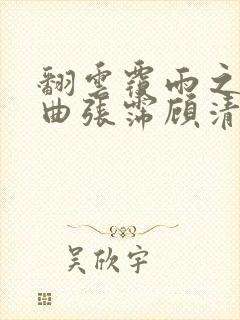 翻雲覆雨之
曲張霈顧清
吴欣宇